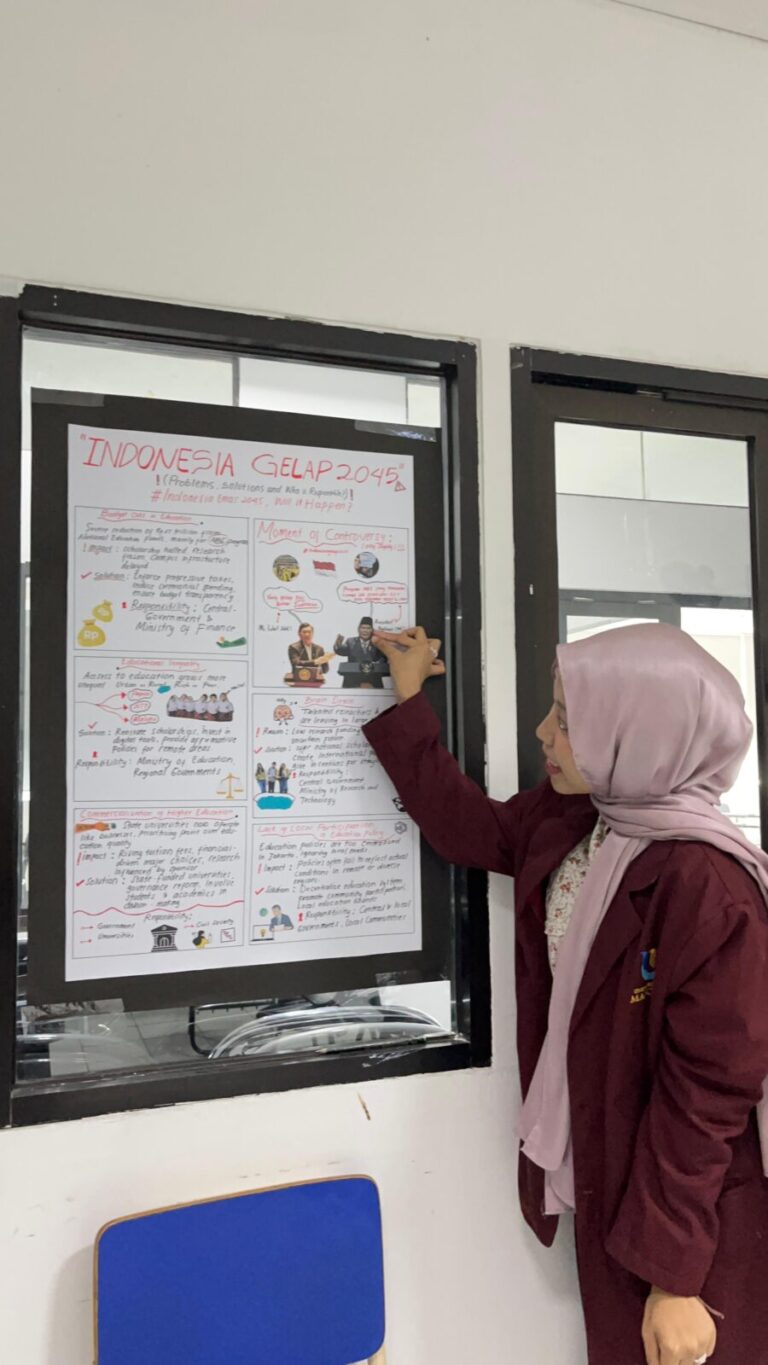 "INDONESIA GELAP 2045"
! (Problems, Solutions and Who is Responsible?) !
#Indonesia Emas 2045, Will it Happen?
Budget Cuts in Education
National Education Funds, mainly for MBG program
! Impact : Scholarship halted, Research
frozen, Campus infrastructure
delayed
✓ Solution : Enforce progressive taxes,
reduce ceremonial spending,
ensure budget transparency
Responsibility : Central-
Government &
Ministry of Finance
RP
Moment of Controversy :
Educational Inequality
Access to education grows more
unequal : Urban vs Rural, Rich vs Poor
Papua
NTT
Solution : Reinstate scholarships, invest in
digital tools, provide affirmative
Policies for remote areas
Responsibility : Ministry of Education,
Regional Governments
Brain Drain
Talented researchers &
are leaving in large
! Reason : Low research funding
✓ Solution : national scholar
Create International
give incentives for
Responsibility :
Central Government
Ministry of Research and
Technology
Commercialization of Higher Education
State universities now operate
like businesses, prioritizing profit over edu-
cation quality
! Impact : Rising tuition fees, financial-
driven major choices, research
influenced by sponsor
✓ Solution : State-funded universities,
governance reform, involve
students & academics in
decision making
Responsibility :
→ Government
→ Universities
→ Civil Society
Lack of Local Participation
in Education Policy
Education policies are too centralized
in Jakarta, ignoring local needs
! Impact : Policies often fail to reflect actual
conditions in remote or diverse
regions
✓ Solution : Decentralize education system,
promote community participation,
Local education boards
! Responsibility : Central & local
Governments, Local Communities